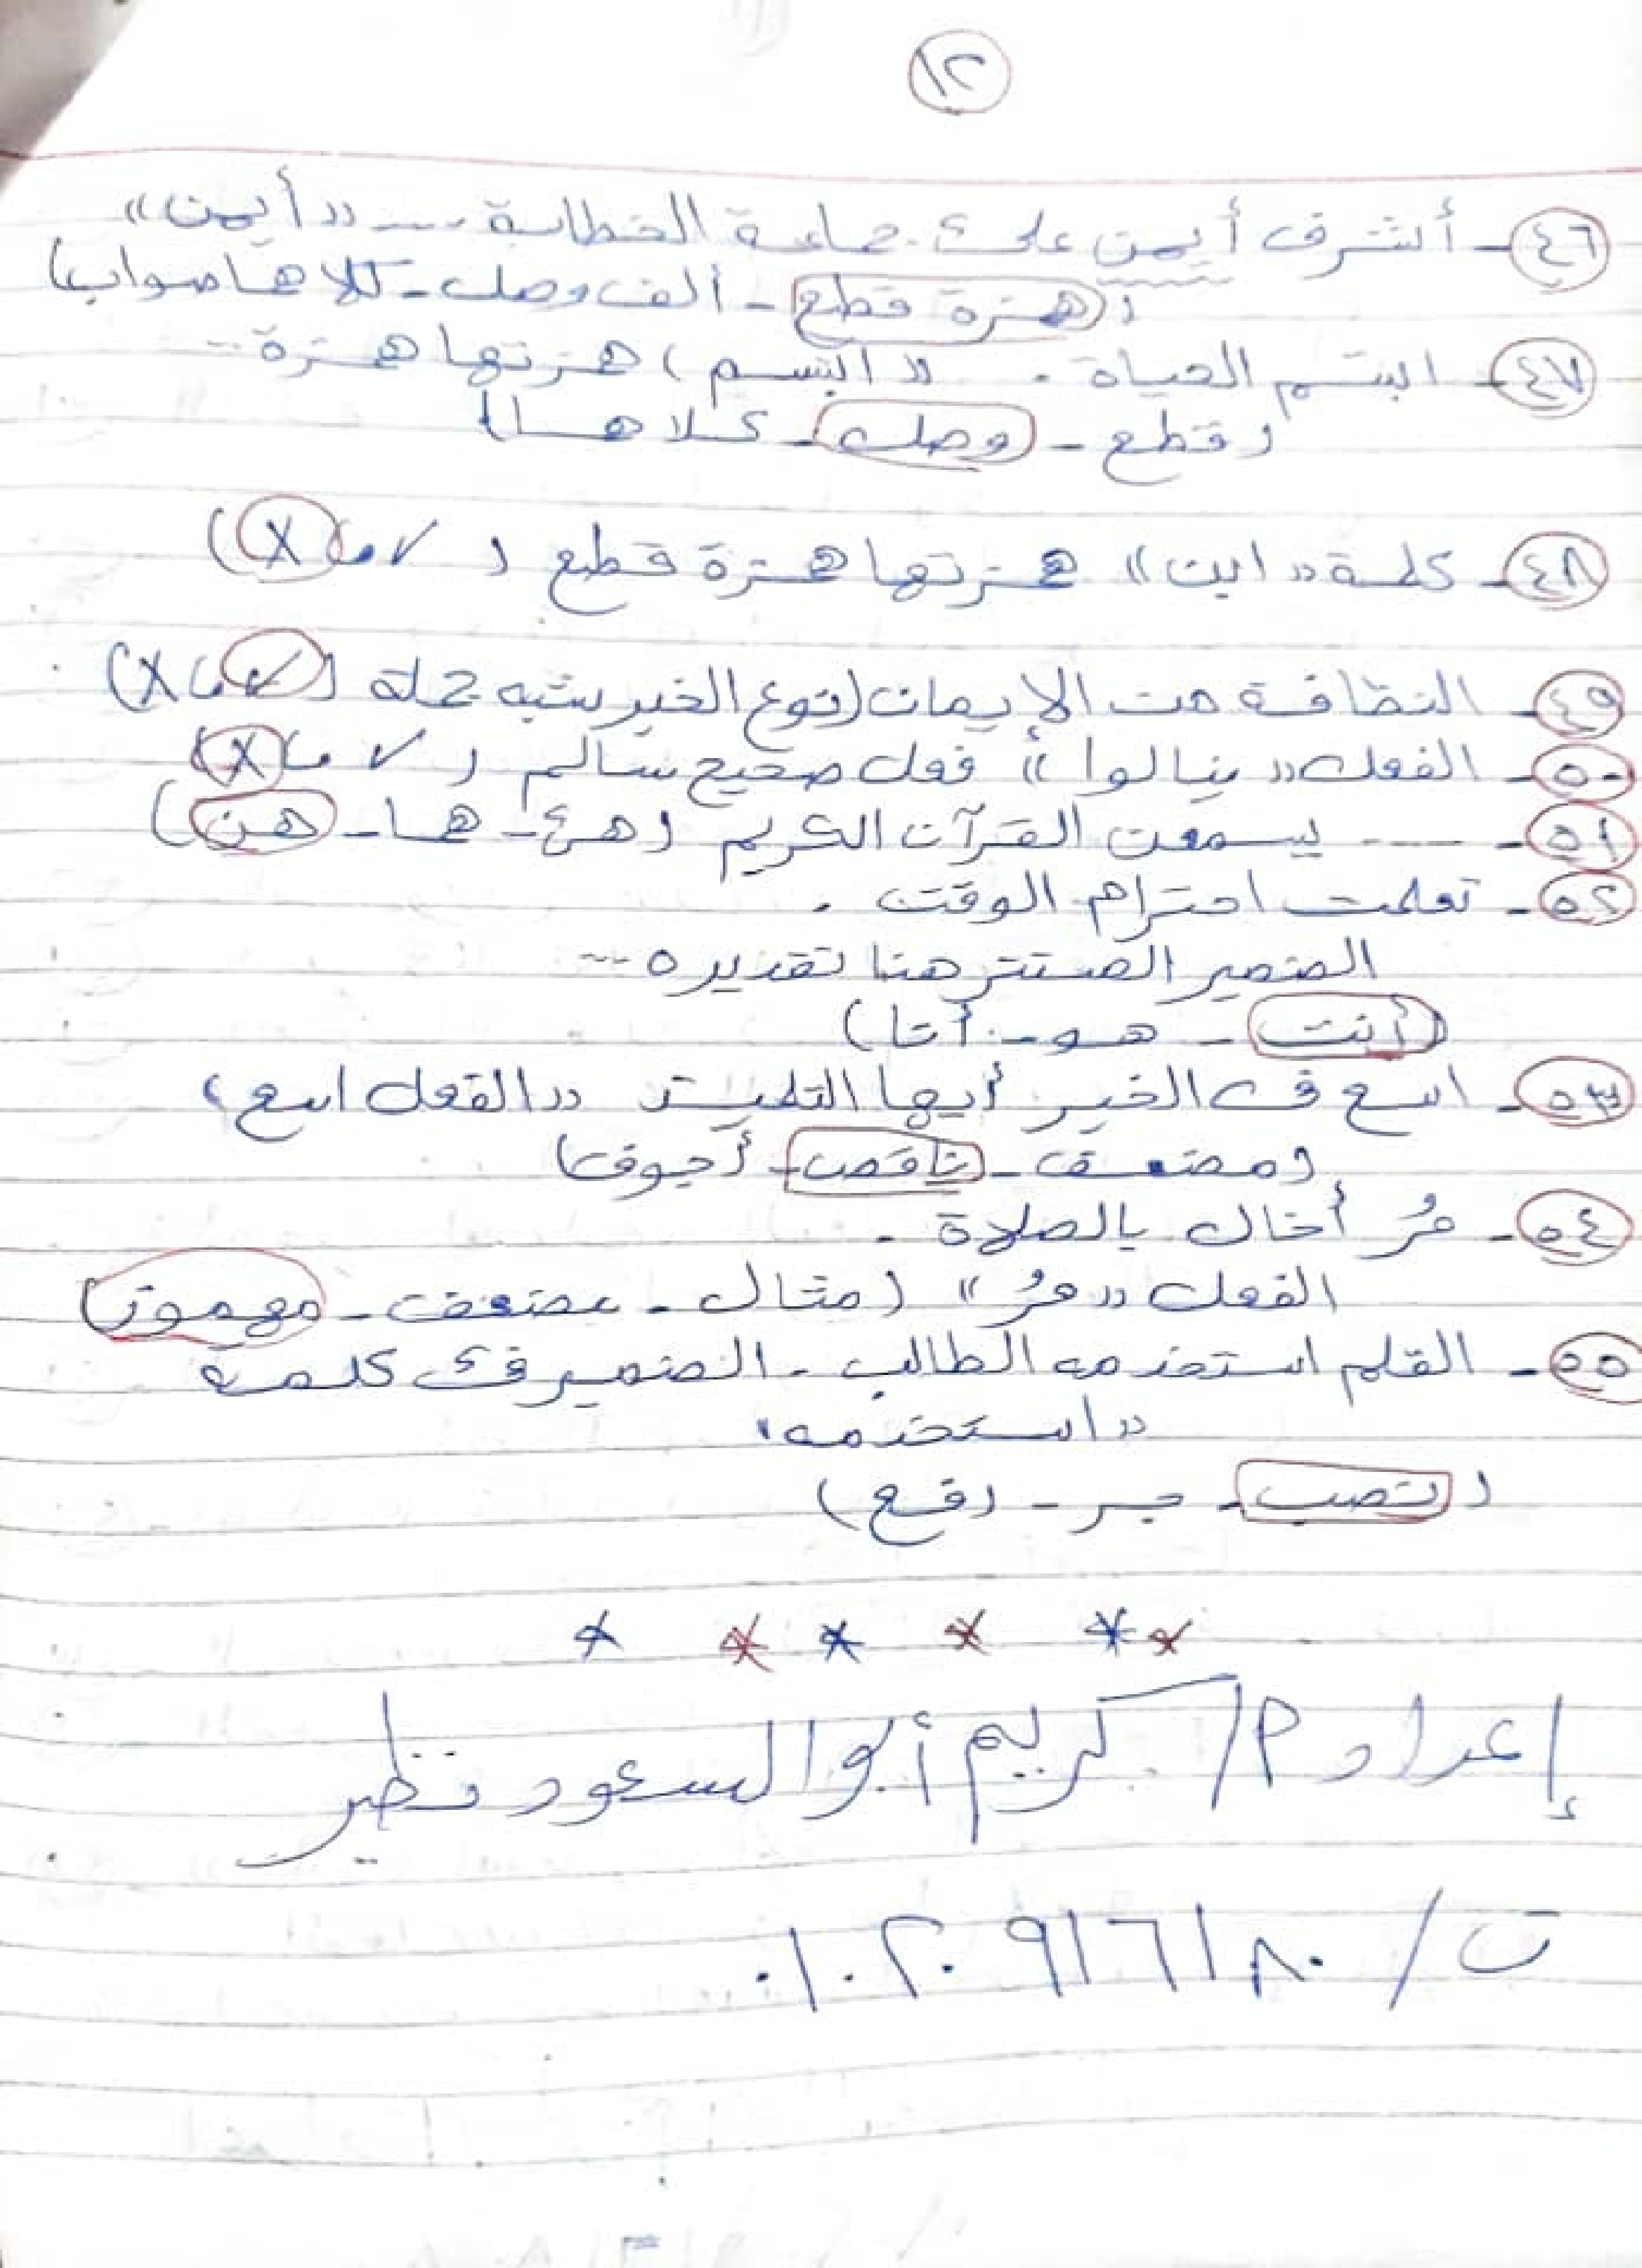 ١٢
٤٦- أشرف أيمن على جماعة الخطابة ---- « أيمن »
( همزة قطع - ألف وصل - كلاهما صواب )
٤٧- ابتسم الحياة . « ابتسم » همزتها همزة ---
( قطع - وصل - كلاهما )
٤٨- كلمة « ابن » همزتها همزة قطع ( ✓ ، X )
٤٩- النظافة من الإيمان ( نوع الخبر شبه جملة ( ✓ ، X )
٥٠- الفعل « ينالوا » فعل صحيح سالم ( ✓ ، X )
٥١- ---- يسمعن القرآن الكريم ( هى - هما - هن )
٥٢- تعلمت احترام الوقت .
الضمير المستتر هنا تقديره ---
( أنت - هو - أنا )
٥٣- اسع فى الخير أيها التلميذ « الفعل اسع »
( مضعف - ناقص - أجوف )
٥٤- مُر أخاك بالصلاة .
الفعل « مُر » ( مثال - مضعف - مهموز )
٥٥- القلم استخدمه الطالب - الضمير فى كلمة
« استخدمه »
( نصب - جر - رفع )
إعداد م/ كريم أبو السعود نظير
ت / ٠١٠٢٠٩١٦١٨٠